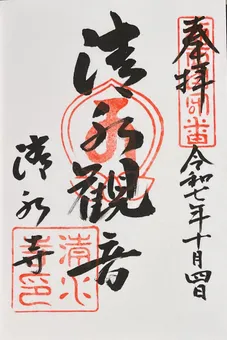 奉拝
令和七年十月四日
清水觀音
清水寺
清水
寺印